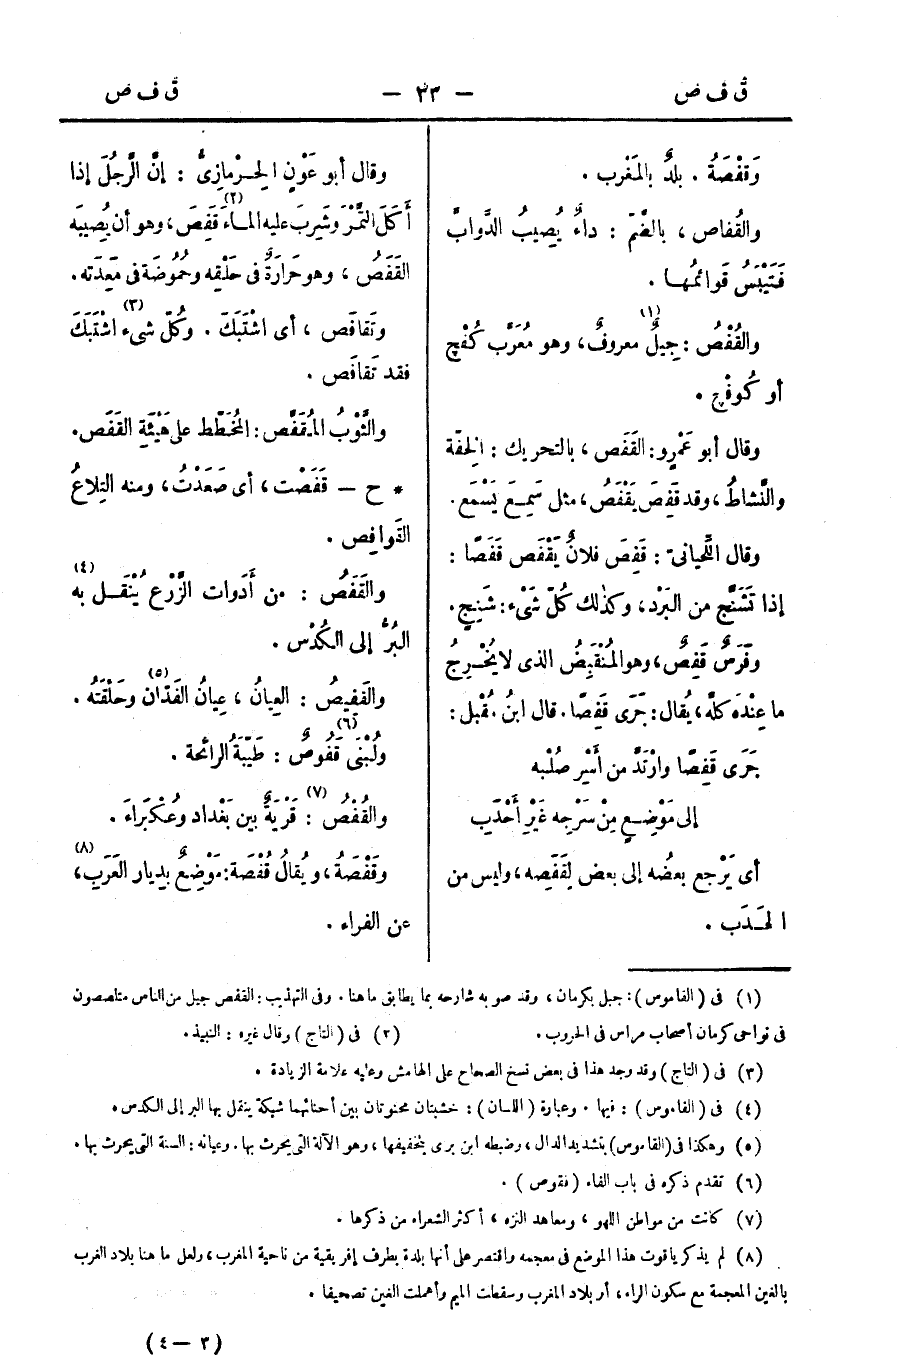 ق ف ص
— ٣٣ —
ق ف ص
وَقَفْصَةُ . بلدٌ بالمَغْرب .
والقُفاص ، بالضَّم : داءٌ يُصِيبُ الدَّوابَّ
فَتَيْبَسُ قَوائمُهـا .
والقُفْصُ : جِيلٌ(١) معروفٌ ، وهو مُعَرَّب كُفْج
أو كُوفْج .
وقال أبو عَمْرٍو : القَفَص ، بالتحريك : الخِفَّة
والنَّشاطُ ، وقد قَفِصَ يَقْفَصُ ، مثل سَمِعَ يَسْمَع .
وقال اللَّحيانىّ : قَفِصَ فلانٌ يَقْفَص قَفَصًا :
إذا تَشَنَّج من البَرْد ، وكذلك كُلّ شَىْء : شَنِجٍ .
وفَرَسٌ قَفِصٌ ، وهو المُنْقَبِضُ الذى لا يُخْرِجُ
ما عِنْدَه كلَّه ، يُقال : جَرَى قَفِصًا . قال ابنُ مُقْبِل :
جَرَى قَفِصًا وارْتَدَّ من أَسْرِ صُلْبه
إلى مَوْضِعٍ مِنْ سَرْجِه غَيْرِ أَحْدَبِ
أى يَرْجع بعضُه إلى بعض لِقَفَصِه ، وليس من
الحَـدَب .
وقال أبو عَوْنٍ الحِرْمازِىُّ : إنَّ الرَّجُلَ إذا
أَكَلَ التَّمْرَ وشَرِبَ عليه المـاءَ(٢) قَفِصَ ، وهو أن يُصِيبَه
القَفَصُ ، وهو حَرارَةٌ فى حَلْقِه وحُمُوضَة فى مَعِدَته .
وتَقافَص ، أى اشْتَبَكَ . وكُلّ شىء(٣) اشْتَبَكَ
فقد تَقافَص .
والثَّوْبُ المُقَفَّص : المُخَطَّط على هَيْئَةِ القَفَص .
* ح — قَفَصْت ، أى صَعَدْتُ ، ومنه التِلاعُ
القَوافِص .
والقَفَصُ : من أَدَوات الزَّرْع يُنْقَـل به(٤)
البُرُّ إلى الكُدْس .
والقَفِيصُ : العِيانُ ، عِيانُ الفَدّان(٥) وحَلْقَتُه .
ولُبْنَى قَفُوصٌ(٦) : طَيِّبَةُ الرائحة .
والقُفْصُ : قَرْيَةٌ(٧) بين بَغْداد وعُكْبَراءَ .
وقَفْصَةُ ، ويُقالُ قُفْصَة : مَوْضِعٌ بِدِيار العَرَبِ(٨) ،
عن الفراء .
(١) فى ( القاموس ) : جبل بكرمان ، وقد صوبه شارحه بما يطابق ما هنا . وفى التهذيب : القفص جيل من الناس متلصصون
فى نواحى كرمان أصحاب مراس فى الحروب .
(٢) فى ( التاج ) وقال غيره : النبيذ .
(٣) فى ( التاج ) وقد وجد هذا فى بعض نسخ الصحاح على الهامش وعليه علامة الزيادة .
(٤) فى ( القاموس ) : فيها . وعبارة ( اللسان ) : خشبتان محنوتان بين أحنائهما شبكة ينقل بها البر إلى الكدس .
(٥) وهكذا فى ( القاموس ) بتشديد الدال ، وضبطه ابن برى بتخفيفها ، وهو الآلة التى يحرث بها . وعيانه : السنة التى يحرث بها .
(٦) تقدم ذكره فى باب الفاء ( فقوص ) .
(٧) كانت من مواطن اللهو ، ومعاهد النزه ، أكثر الشعراء من ذكرها .
(٨) لم يذكر ياقوت هذا الموضع فى معجمه واقتصر على أنها بلدة بطرف إفريقية من ناحية المغرب ، ولعل ما هنا بلاد الغرب
بالغين المعجمة مع سكون الراء ، أو بلاد المغرب وسقطت الميم وأهملت الغين تصحيفا .
(٣ — ٤)